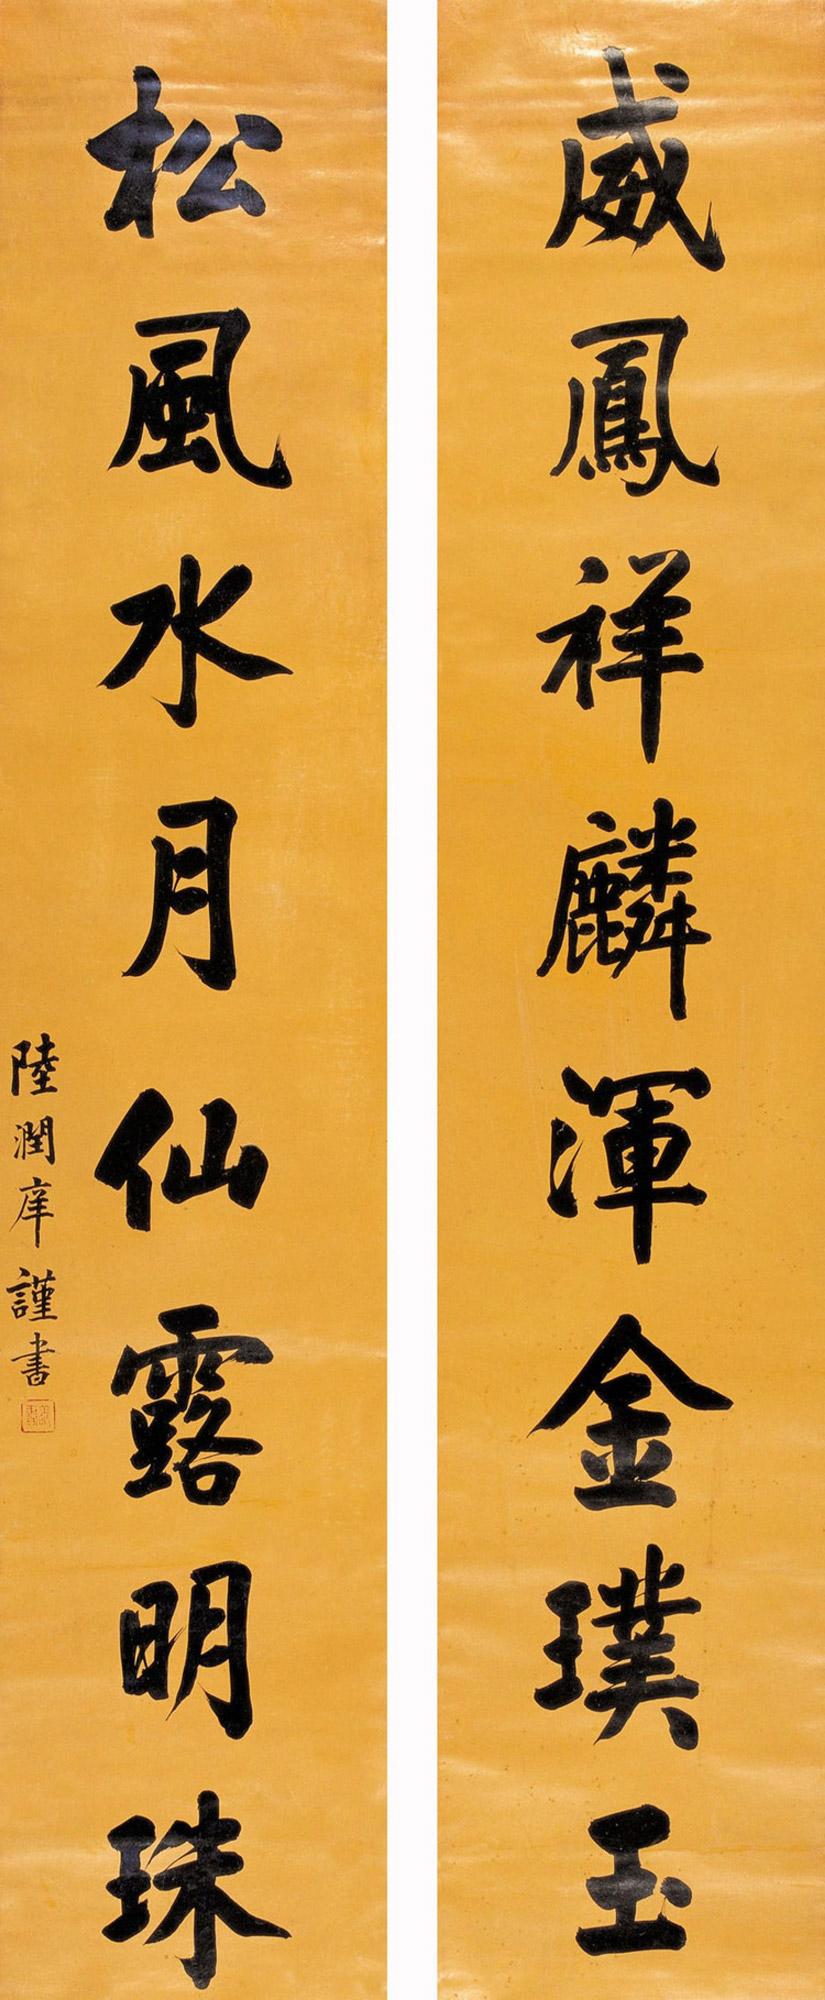 威鳳祥麟渾金璞玉
松風水月仙露明珠
陸潤庠謹書